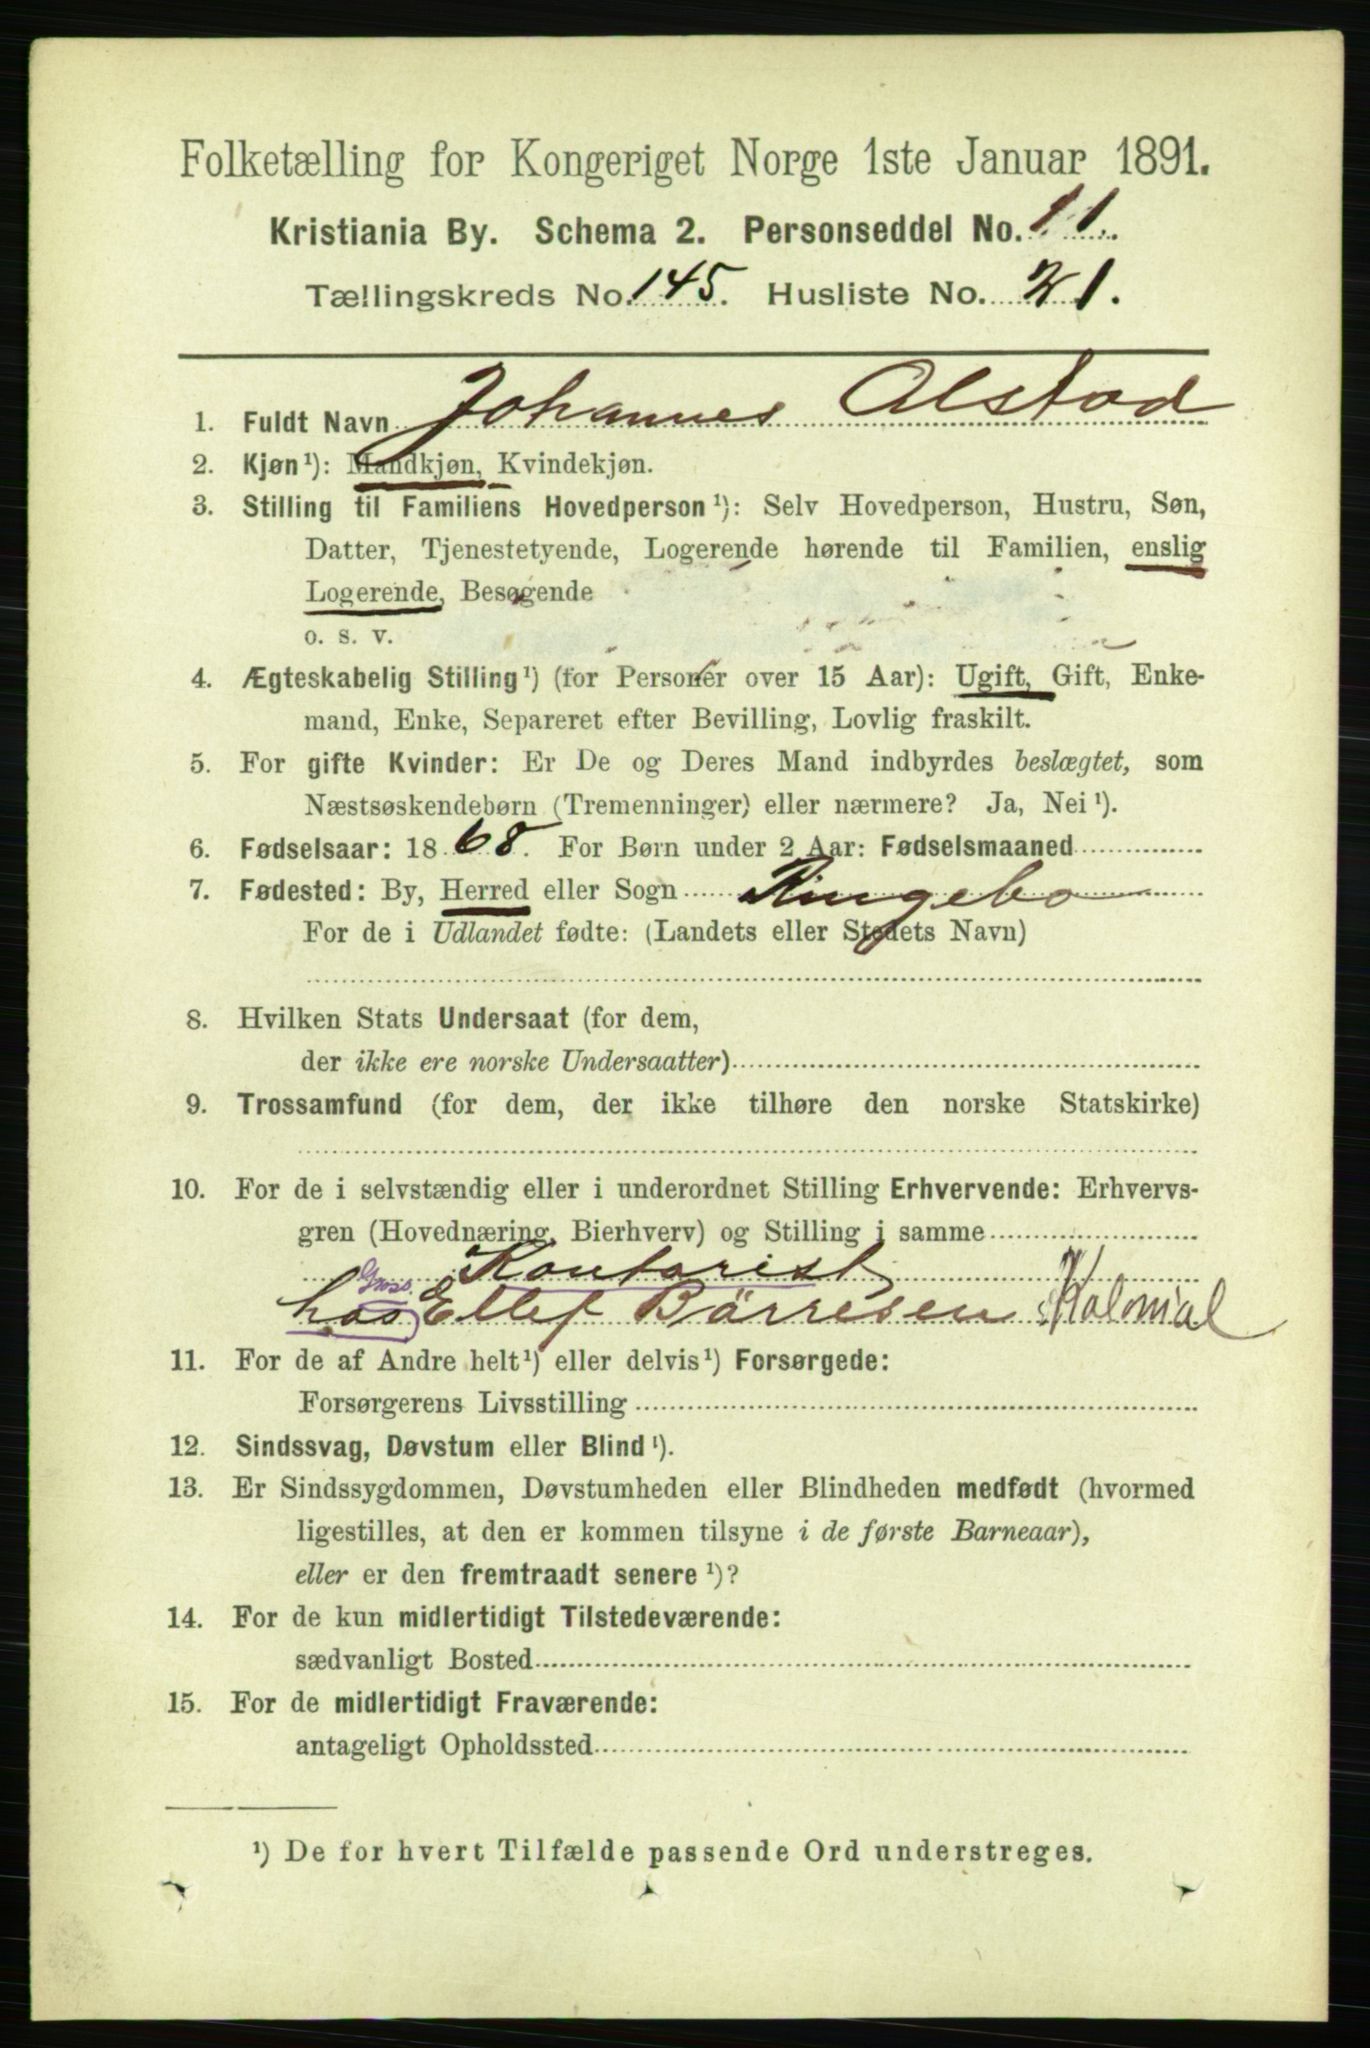 Folketælling for Kongeriget Norge 1ste Januar 1891.
Kristiania By. Schema 2. Personseddel No. 11.
Tællingskreds No. 145. Husliste No. 21.
1. Fuldt Navn Johannes Alstad
2. Kjøn¹): Mandkjøn, Kvindekjøn.
3. Stilling til Familiens Hovedperson¹): Selv Hovedperson, Hustru, Søn,
Datter, Tjenestetyende, Logerende hørende til Familien, enslig
Logerende, Besøgende
o. s. v.
4. Ægteskabelig Stilling¹) (for Personer over 15 Aar): Ugift, Gift, Enke-
mand, Enke, Separeret efter Bevilling, Lovlig fraskilt.
5. For gifte Kvinder: Er De og Deres Mand indbyrdes beslægtet, som
Næstsøskendebørn (Tremenninger) eller nærmere? Ja, Nei¹).
6. Fødselsaar: 1868. For Børn under 2 Aar: Fødselsmaaned
7. Fødested: By, Herred eller Sogn Ringebo
For de i Udlandet fødte: (Landets eller Stedets Navn)
8. Hvilken Stats Undersaat (for dem,
der ikke ere norske Undersaatter)
9. Trossamfund (for dem, der ikke tilhøre den norske Statskirke)
10. For de i selvstændig eller i underordnet Stilling Erhvervende: Erhvervs-
gren (Hovednæring, Bierhverv) og Stilling i samme
Kontorist
Gross.
hos Ellef Börresen Kolonial
11. For de af Andre helt¹) eller delvis¹) Forsørgede:
Forsørgerens Livsstilling
12. Sindssvag, Døvstum eller Blind¹).
13. Er Sindssygdommen, Døvstumheden eller Blindheden medfødt (hvormed
ligestilles, at den er kommen tilsyne i de første Barneaar),
eller er den fremtraadt senere¹)?
14. For de kun midlertidigt Tilstedeværende:
sædvanligt Bosted
15. For de midlertidigt Fraværende:
antageligt Opholdssted
¹) De for hvert Tilfælde passende Ord understreges.